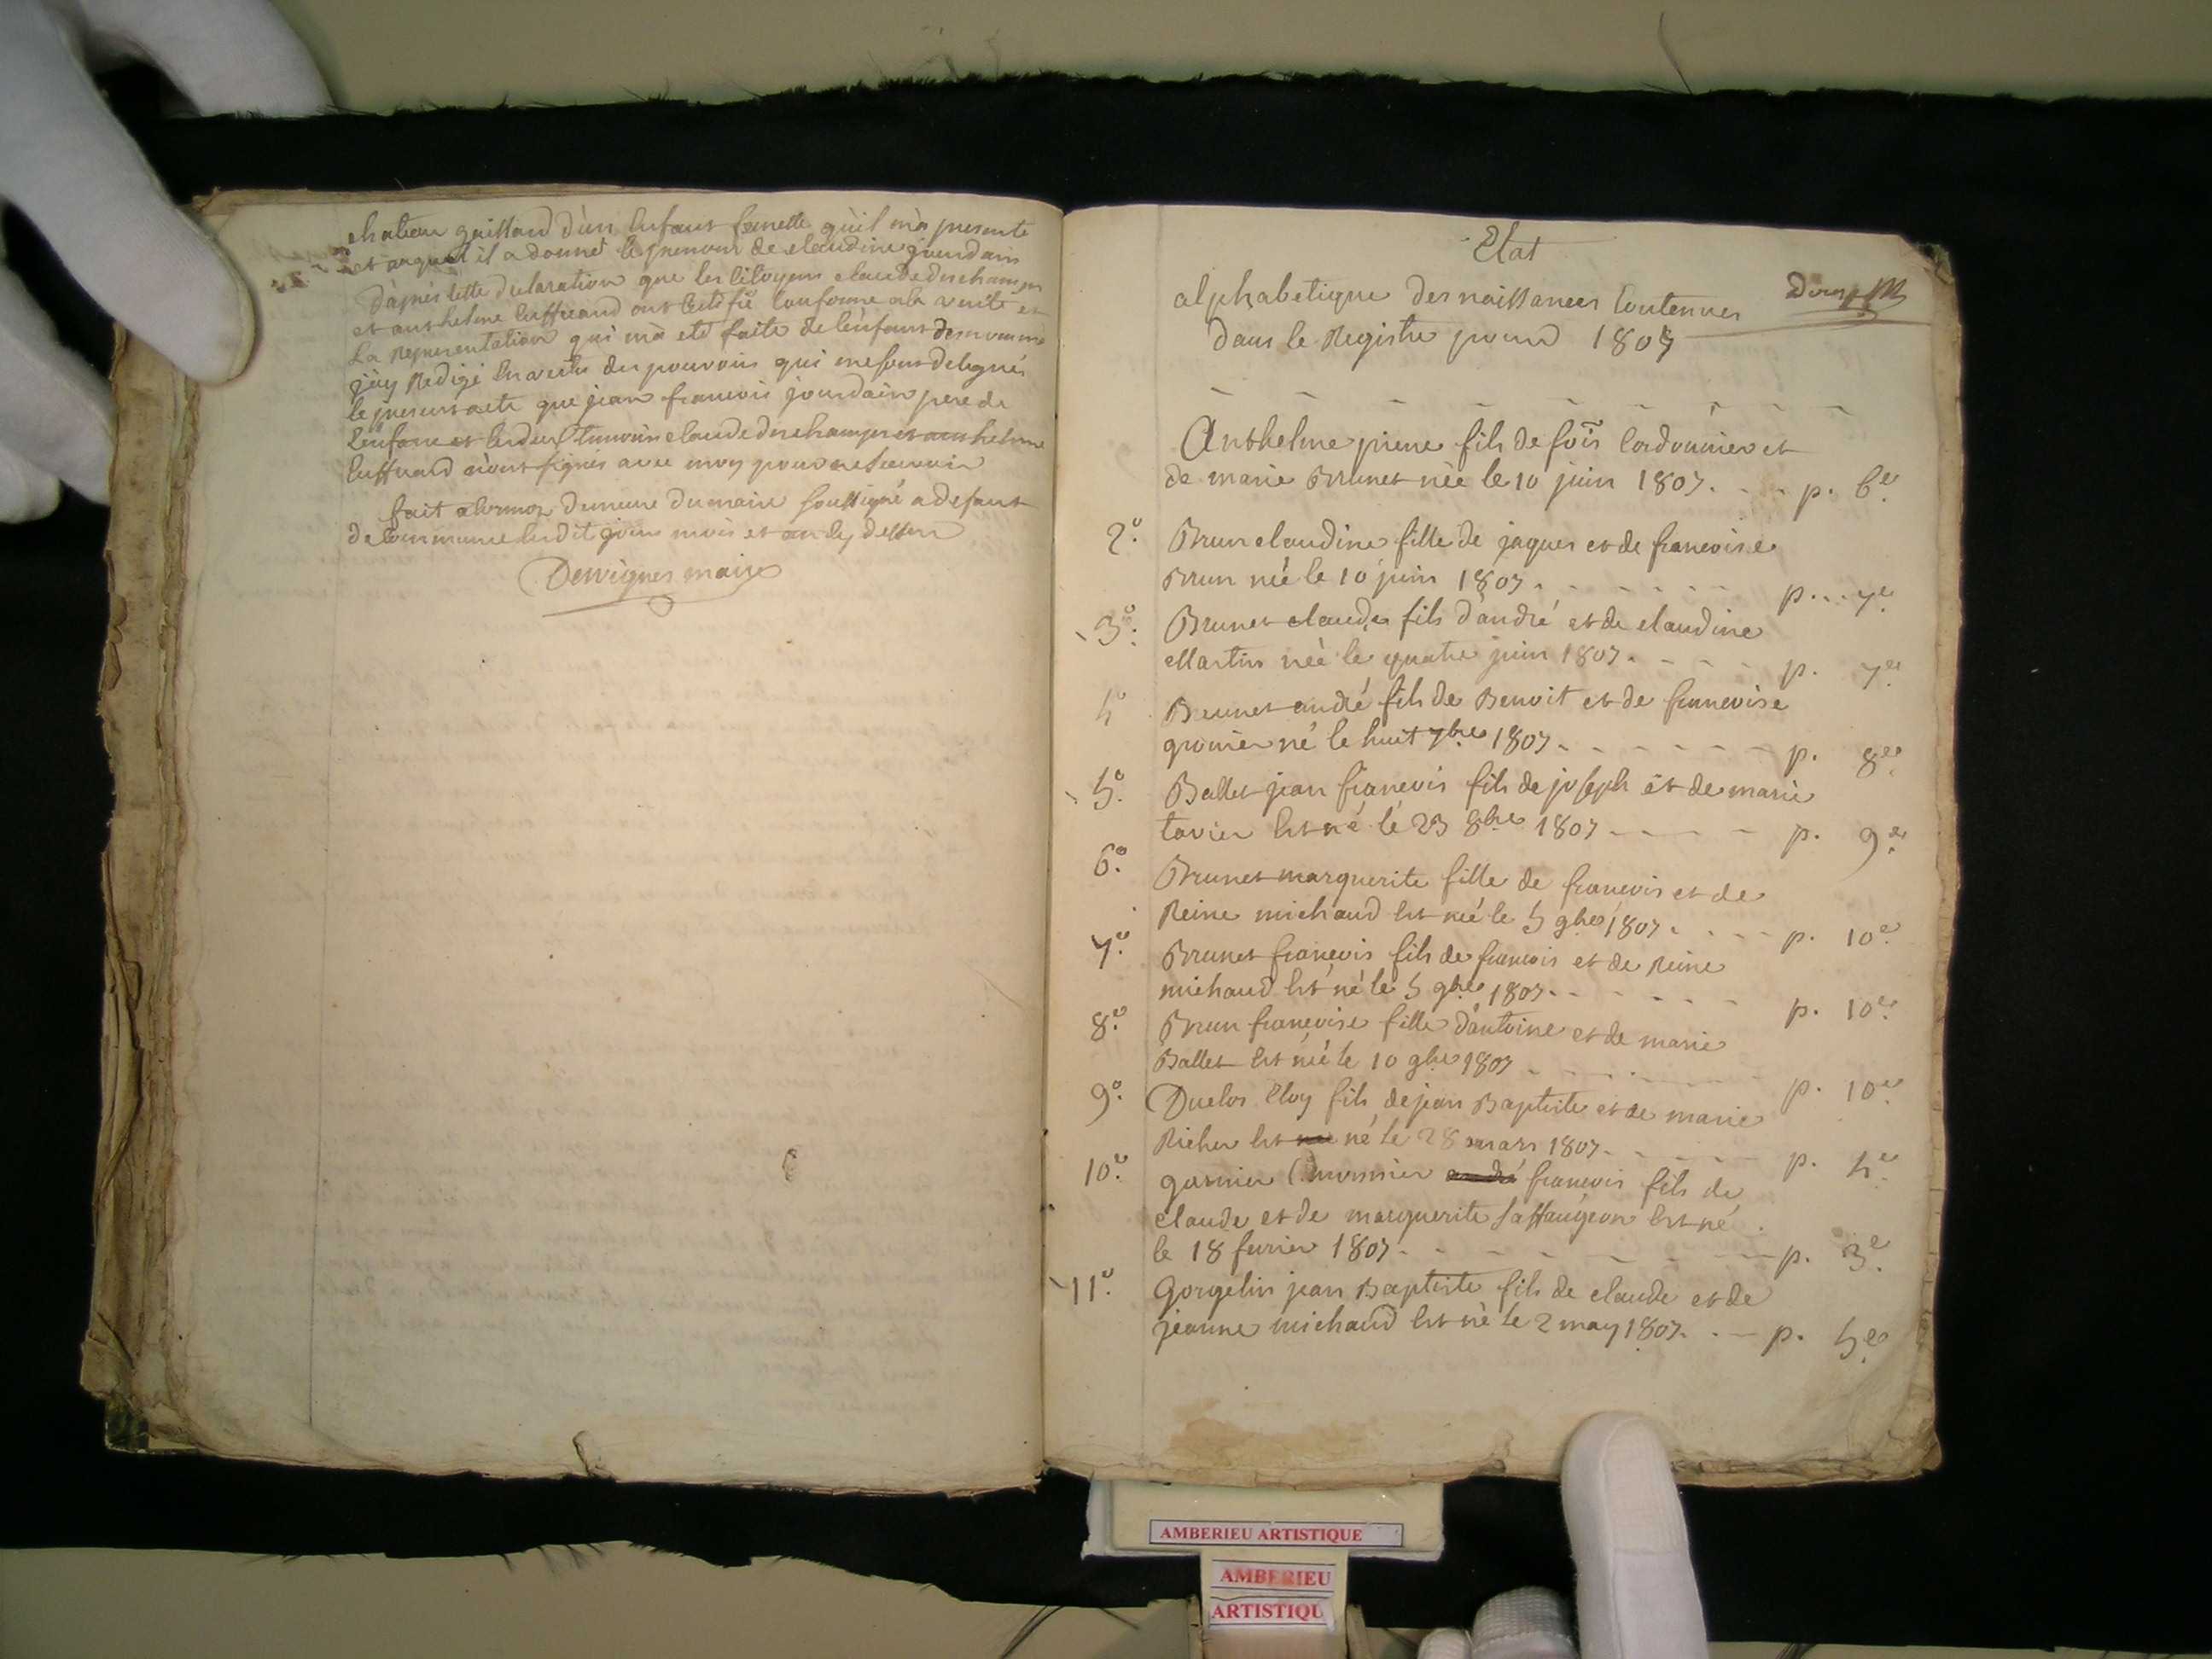 chateau gaillard d'un enfant femelle qu'il m'a presenté
et auquel il a donné le prenom de claudine jourdain
D'après cette declaration que les citoyens claude deschamps
et anthelme cuffuand ont certifié conforme a la verité et
La representation qui m'a eté faite de l'enfant denommé
j'ay Redigé en vertu des pouvoirs qui me sont delegués
le present acte que jean francois jourdain pere de
l'enfant et les deux temoins claude deschamps et anthelme
cuffuand n'ont signés avec moy pour ne scavoir
fait a demeure du maire soussigné a defaut
de commune lesdit jour mois et an cy dessus
Desvignes maire
Etat
alphabetique des naissances contenues
dans le Registre pour 1807
Anthelme pierre fils de fois cordonnier et
de marie Brunet née le 10 juin 1807. - - - p. 6e.
2o. Brun claudine fille de jaques et de francoise
Brun née le 10 juin 1807. - - - - - - p. . . 7e.
3o. Brunet claude fils d'andré et de claudine
Martin née le quatre juin 1807. - - - - p. 7e.
4o Brunet andré fils de Benoit et de francoise
gronier né le huit 7bre 1807. - - - - - - p. 8e.
5o. Ballet jean francois fils de joseph et de marie
tavier est né le 23 8bre 1807 - - - - p. 9e.
6o. Brunet marguerite fille de francois et de
Reine michaud est née le 5 9bre 1807. - - - p. 10e.
7o. Brunet francois fils de francois et de Reine
michaud est né le 5 9bre 1807. - - - - - - p. 10e.
8o. Brun francoise fille d'antoine et de marie
Ballet est née le 10 9bre 1807 - - - - - - p. 10e.
9o. Duclos Eloy fils de jean Baptiste et de marie
Richer est né le 28 mars 1807. - - - - - p. 4e.
10o. garnier monnier andré francois fils de
claude et de marguerite saffangeon est né
le 18 fevrier 1807. - - - - - - - p. 3e.
11o. Gorgelin jean Baptiste fils de claude et de
jeanne michaud est né le 2 may 1807. . - p. 5e.
AMBERIEU ARTISTIQUE
AMBERIEU
ARTISTIQU